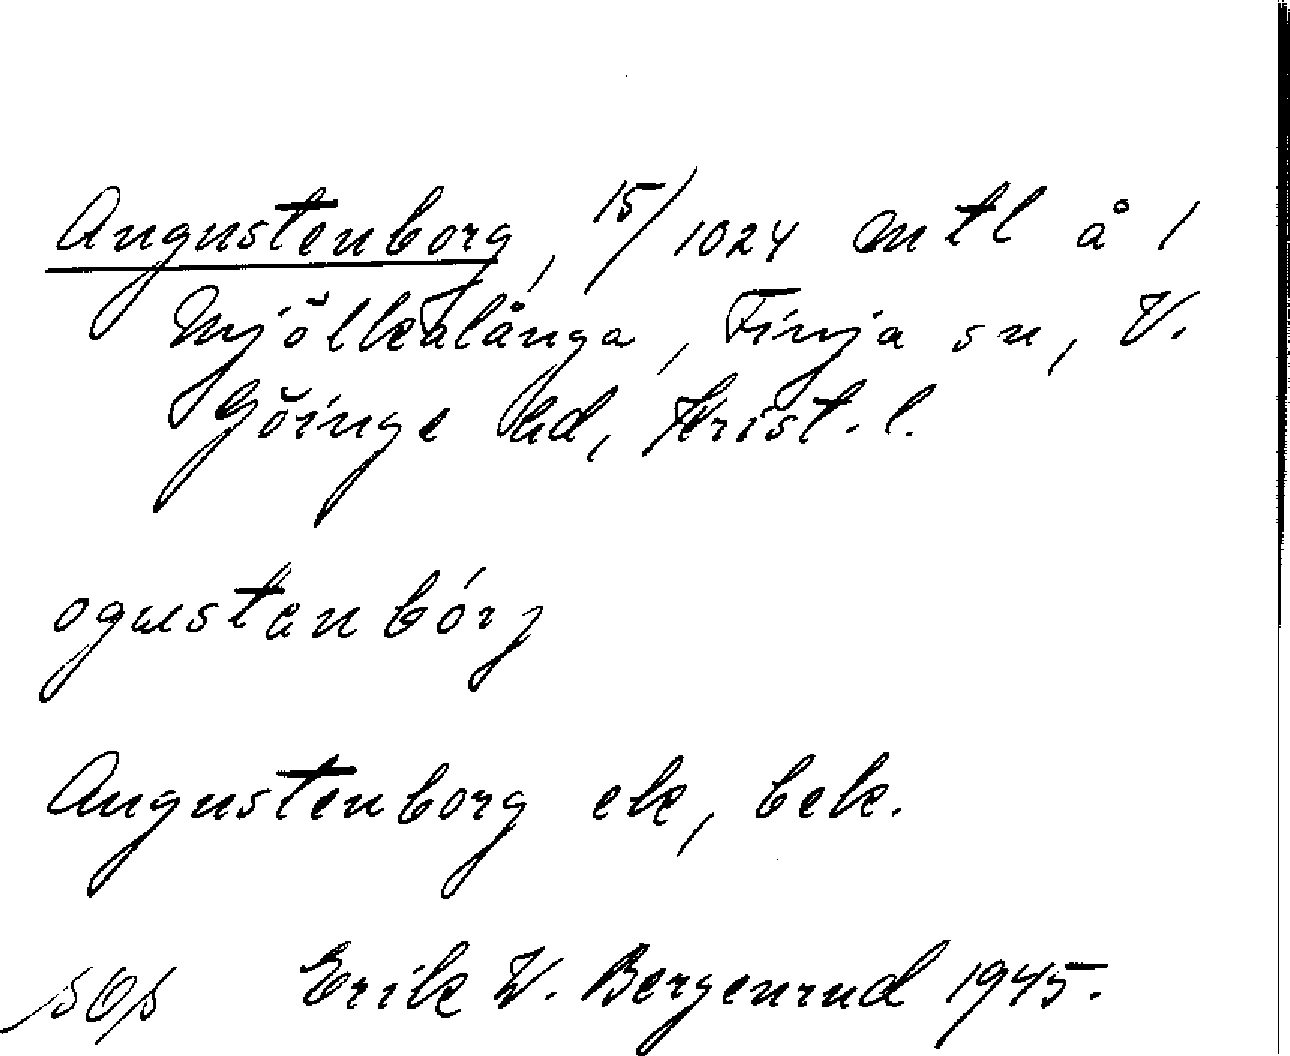 Augustenborg, 15/1024 mtl å 1
Mjölkalånga, Finja sn, V.
Göinge hd, Krist. l.
ogustanbórj
Augustenborg ek, bek.
Erik W. Bergenrud 1945.